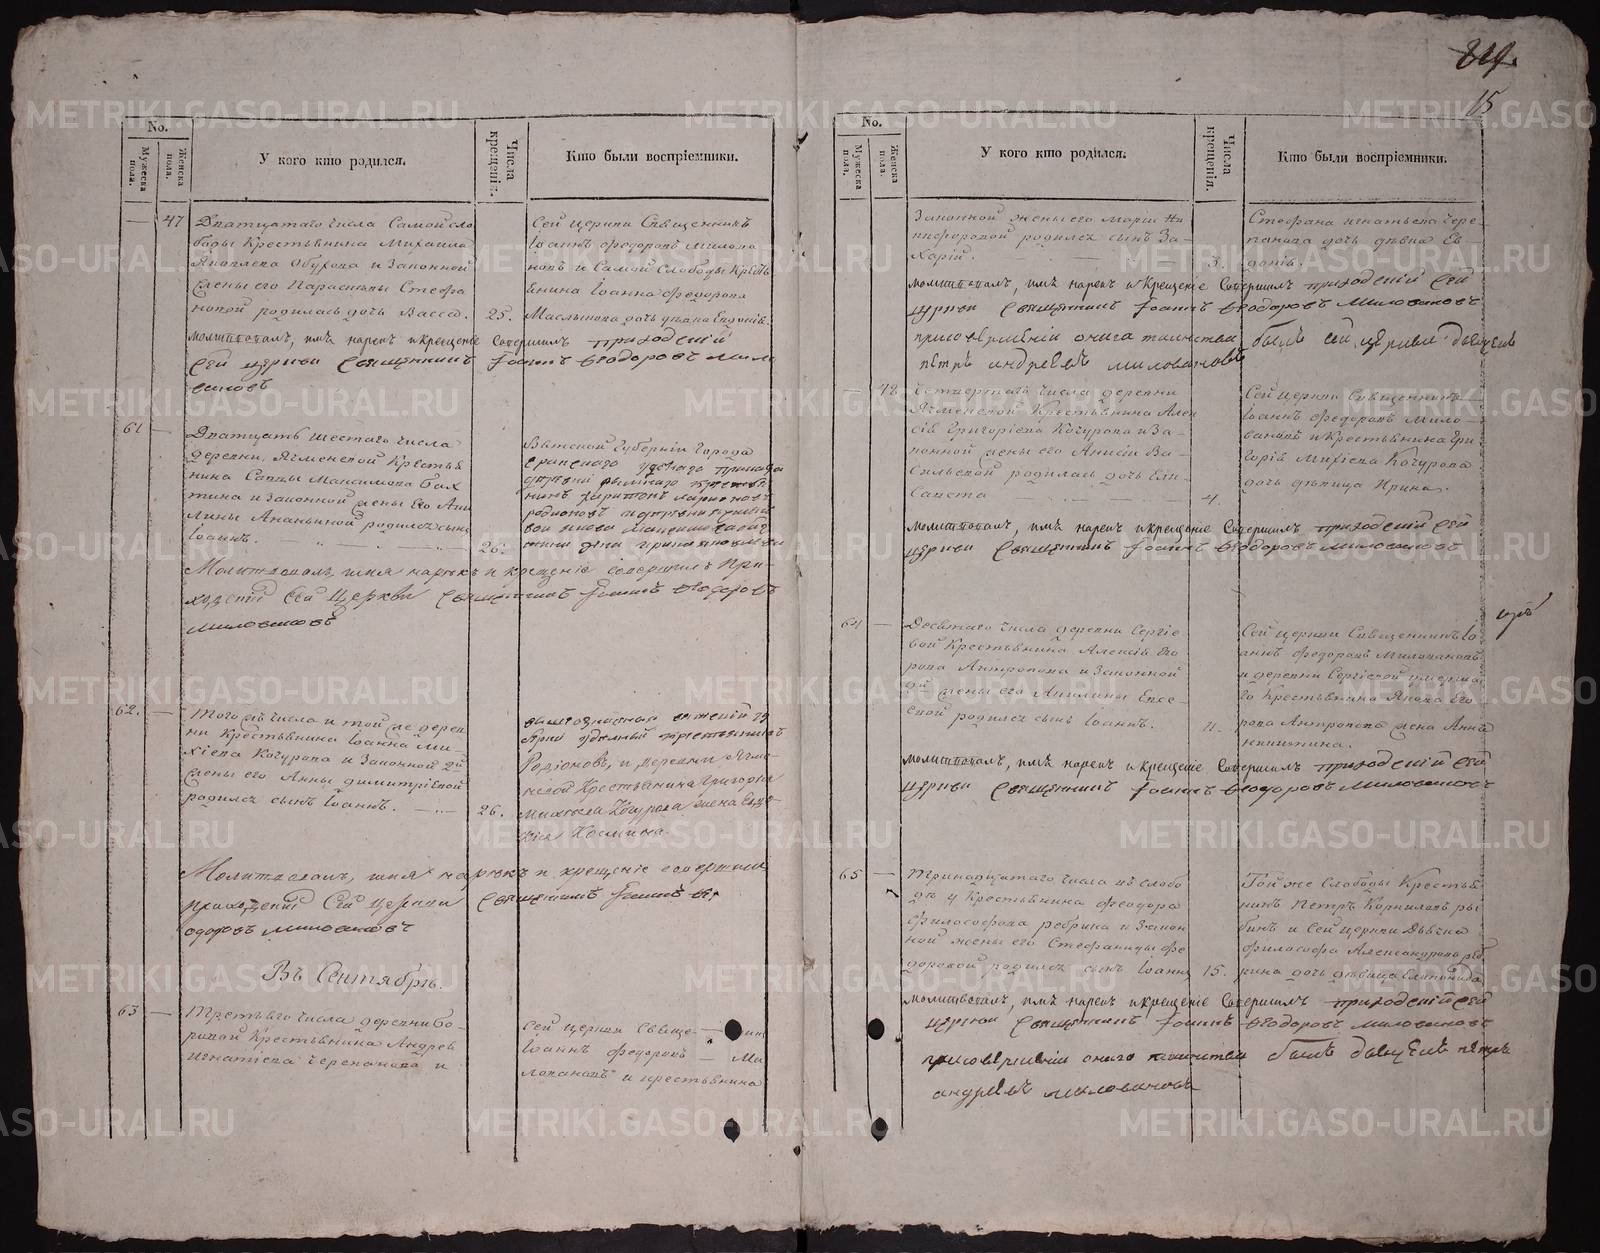 819.
15
No.
Мужеска пола.
Женска пола.
У кого кто родился.
Числа крещенія.
Кто были воспріемники.
— 47
Дватцатаго числа Самой сло
боды Крестьянина Михаила
Яковлева Обухова и Законной
жены его Параскевы Стефа
новой родилась дочь Васса.
25.
Сей церкви Священникъ
Іоаннъ Федоровъ Милова
новъ и Самой Слободы Кресть
янина Іоанна Федорова
Маслыкова дочь девка Евдокія.
молитвовалъ, имя нареч и крещеніе Совершилъ приходскій
Сей церкви Священникъ Іоаннъ Ѳеодоровъ Мил
вановъ
61 —
Дватцать шестаго числа
деревни Ячменевой Крестья
нина Саввы Максимова Бах
тина и Законной жены его Аки
лины Ананьиной родился сынъ
Іоаннъ.
26.
Вятской Губерніи города
Харитонъ Ларионовъ
Молитвовалъ, имя нарекъ и крещеніе совершилъ При-
ходскій Сей Церкви Священникъ Іоаннъ Ѳеодоровъ
Миловановъ
62. —
Того жъ числа и той же дерев
ни Крестьянина Іоанна Ми-
хіева Кочурова и Законной 2й
жены его Анны Димитріевой
родился сынъ Іоаннъ.
26.
Родіоновъ, и деревни Ячме
невой Крестьянина Григорья
Михіева Кочурова жена Евдо
кія Космина
Молитвовалъ, имя нарекъ и крещеніе совершилъ
приходскій Сей Церкви Священникъ Іоаннъ Ѳе
одоровъ Миловановъ
Въ Сентябрѣ.
63 —
Третьяго числа деревни Бо-
ровой Крестьянина Андрея
Игнатіева Черепанова и
Сей церкви Священ— никъ
Іоаннъ Федоровъ — Ми
ловановъ и крестьянина
No.
Мужеска пола.
Женска пола.
У кого кто родился.
Числа крещенія.
Кто были воспріемники.
Законной жены его Маріи Ни
кифоровой родился сынъ За-
харій.
3.
Стефана Игнатьева Чере-
панова дочь девка Ев-
докія.
молитвовалъ, имя нареч и крещеніе Совершилъ приходскій Сей
церкви Священникъ Іоаннъ Ѳеодоровъ Миловановъ
при совершеніи онаго таинства былъ сей церкви дьячекъ
Петръ Андреевъ Миловановъ
— 48
Четвертаго числа деревни
Ячменевой Крестьянина Алек
сія Григоріева Кочурова и За-
конной жены его Анисіи Ва-
сильевой родилась дочь Ели-
савета
4.
Сей церкви Священникъ
Іоаннъ Федоровъ Мило-
вановъ и Крестьянина Гри
горія Михіева Кочурова
дочь девица Ирина.
молитвовалъ, имя нареч и крещеніе Совершилъ приходскій Сей
церкви Священникъ Іоаннъ Ѳеодоровъ Миловановъ
64 —
Десятаго числа деревни Сергіе
вой Крестьянина Алексія Его
рова Антропова и Законной
2й жены его Акилины Евсе-
евой родился сынъ Іоаннъ.
11.
Сей церкви Священникъ Іо
аннъ Федоровъ Миловановъ
и деревни Сергіевой умерша
го Крестьянина Якова Его
рова Антропова жена Анна
Никитина.
молитвовалъ, имя нареч и крещеніе Совершилъ приходскій Сей
церкви Священникъ Іоаннъ Ѳеодоровъ Миловановъ
65 —
Тринадцатаго числа въ слобо
де у Крестьянина Феодора
Философова Рябина и Закон
ной жены его Стефаниды Фе
доровой родился сынъ Іоаннъ
15.
Той же Слободы Крестья
нинъ Петръ Корнилов Ря
бинъ и Сей церкви Дьячка
Философа Александрова Ря
кина дочь девица
молитвовалъ, имя нареч и крещеніе Совершилъ приходскій Сей
церкви Священникъ Іоаннъ Ѳеодоровъ Миловановъ
при совершеніи онаго таинства былъ дьячекъ Петръ
Андреевъ Миловановъ
METRIKI.GASO-URAL.RU